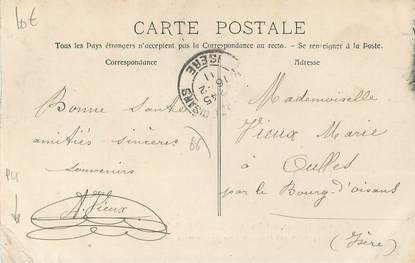 Lot
CARTE POSTALE
Tous les Pays étrangers n'acceptent pas la Correspondance au recto. – Se renseigner à la Poste.
Correspondance
Adresse
ISERE
OISANS
Bonne Santé
amitiés sincères
souvenirs
A. Vieux
66
Mademoiselle
Vieux Marie
à
Oulles
par le Bourg-d'oisans
(Isère)